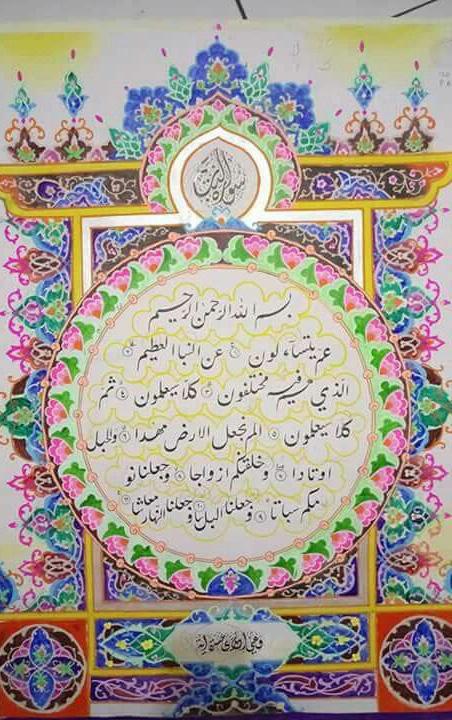 سورة
بسم الله الرحمن الرحيم
عم يتساءلون ١ عن النبا العظيم ٢
الذي هم فيه مختلفون ٣ كلا سيعلمون ٤ ثم
كلا سيعلمون ٥ الم نجعل الارض مهدا ٦ والجبال
اوتادا ٧ وخلقنكم ازواجا ٨ وجعلنا نو
مكم سباتا ٩ وجعلنا اليل لباسا ١٠ وجعلنا النهار معاشا ١١
وهي احدى عشرة اية